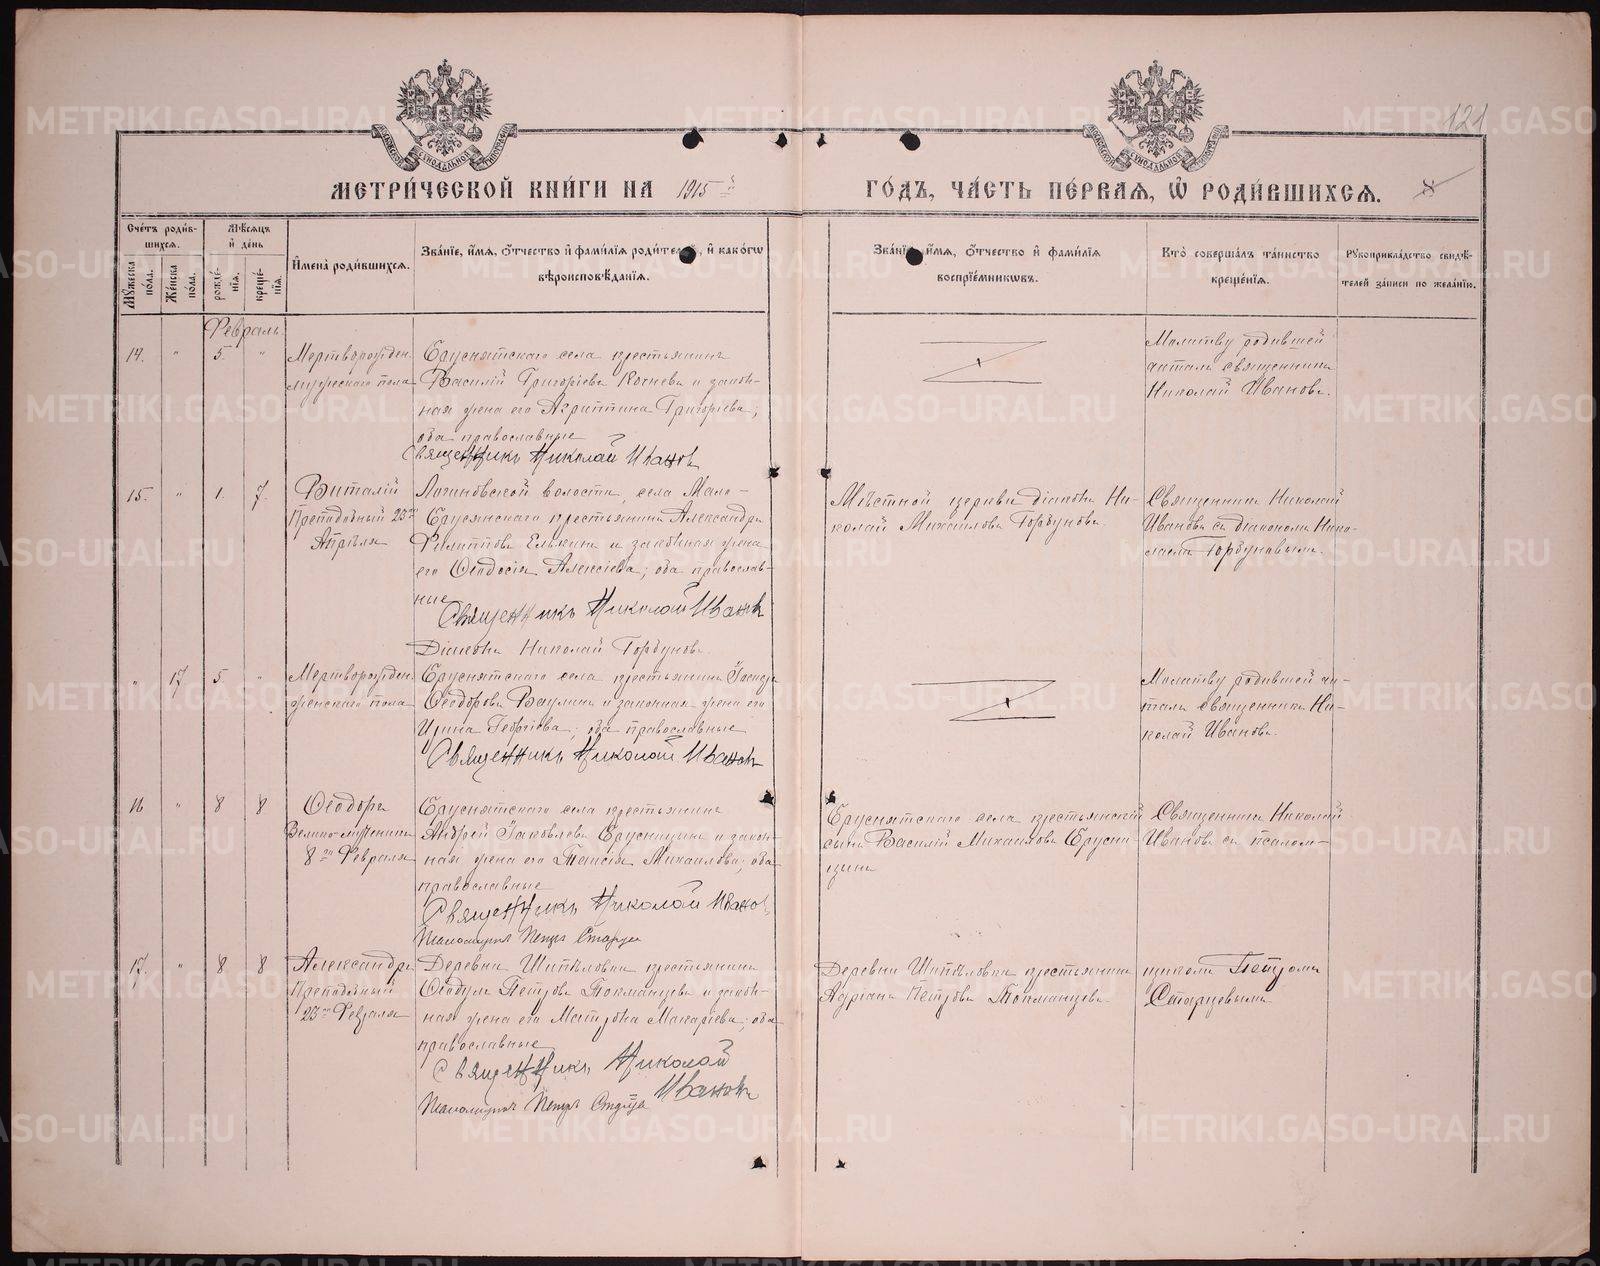 121
МЕТРИ́ЧЕСКОЙ КНИ́ГИ НА 1915 й
ГО́ДЪ, ЧА́СТЬ ПЕ́РВАЯ, Ѡ РОДИ́ВШИХСЯ.
Сче́тъ роди́в-
шихся.
Мѣ́сяцъ
и҆ день
И҆мена̀ роди́вшихся.
Зва́нїе, и҆́мя, ѻ҆́тчество и҆ фами́лїя роди́телей, и҆ како́гѡ
вѣроисповѣ́данїя.
Мꙋ́жеска
по́ла.
Же́нска
по́ла.
рожде́-
нїя.
креще́-
нїя.
Зва́нїе, и҆́мя, ѻ҆́тчество и҆ фами́лїя
воспрїе́мникѡвъ.
Кто̀ соверша́лъ та́инство
креще́нїя.
Рꙋкоприкла́дство свидѣ́-
телей за́писи по жела́нїю.
Февраль
14. " 5. "
Мертворожден.
мужескаго пола
Еруснятскаго села крестьянинъ
Василій Григоріевъ Кочневъ и закон-
ная жена его Агриппина Григоріева;
оба православные
Священникъ Николай Ивановъ
Молитву родившей
читалъ священникъ
Николай Ивановъ.
15. " 1. 7.
Виталій
Преподобный 23го
Апрѣля
Логиновской волости, села Мало-
Ерусянскаго крестьянинъ Александръ
Филипповъ Елькинъ и законная жена
его Ѳеодосія Алексіева; оба православ-
ные
Священникъ Николай Ивановъ
Діаконъ Николай Горбуновъ.
Мѣстной церкви діаконъ Ни-
колай Михаиловъ Горбуновъ.
Священникъ Николай
Ивановъ съ діакономъ Нико-
лаемъ Горбуновымъ.
" 17 5 "
Мертворожден.
женскаго пола
Еруснятскаго села крестьянинъ
Ѳеодоровъ Ваулинъ и законная жена его
Ирина Георгіева; оба православные
Священникъ Николай Ивановъ
Молитву родившей чи-
талъ священникъ Ни-
колай Ивановъ.
16 " 8 8
Ѳеодоръ
Велико-мученикъ
8го Февраля
Еруснятскаго села крестьянинъ
Андрей Іаковлевъ Ерусницынъ и закон-
ная жена его Таисія Михаилова; оба
православные
Священникъ Николай Ивановъ
Псаломщикъ Петръ Старцевъ
Еруснятскаго села крестьянскій
сынъ Василій Михаиловъ Ерусни-
цынъ
Священникъ Николай
Ивановъ съ псалом-
17. " 8 8
Александръ
Преподобный
23го Февраля
Деревни Шипѣловки крестьянинъ
Ѳеодулъ Петровъ Токманцевъ и закон-
ная жена его Матрона Макаріева; оба
православные
Священникъ Николай
Ивановъ
Псаломщикъ Петръ Старцевъ
Деревни Шипѣловки крестьянинъ
Адріанъ Петровъ Токманцевъ.
щикомъ Петромъ
Старцевымъ.
METRIKI.GASO-URAL.RU